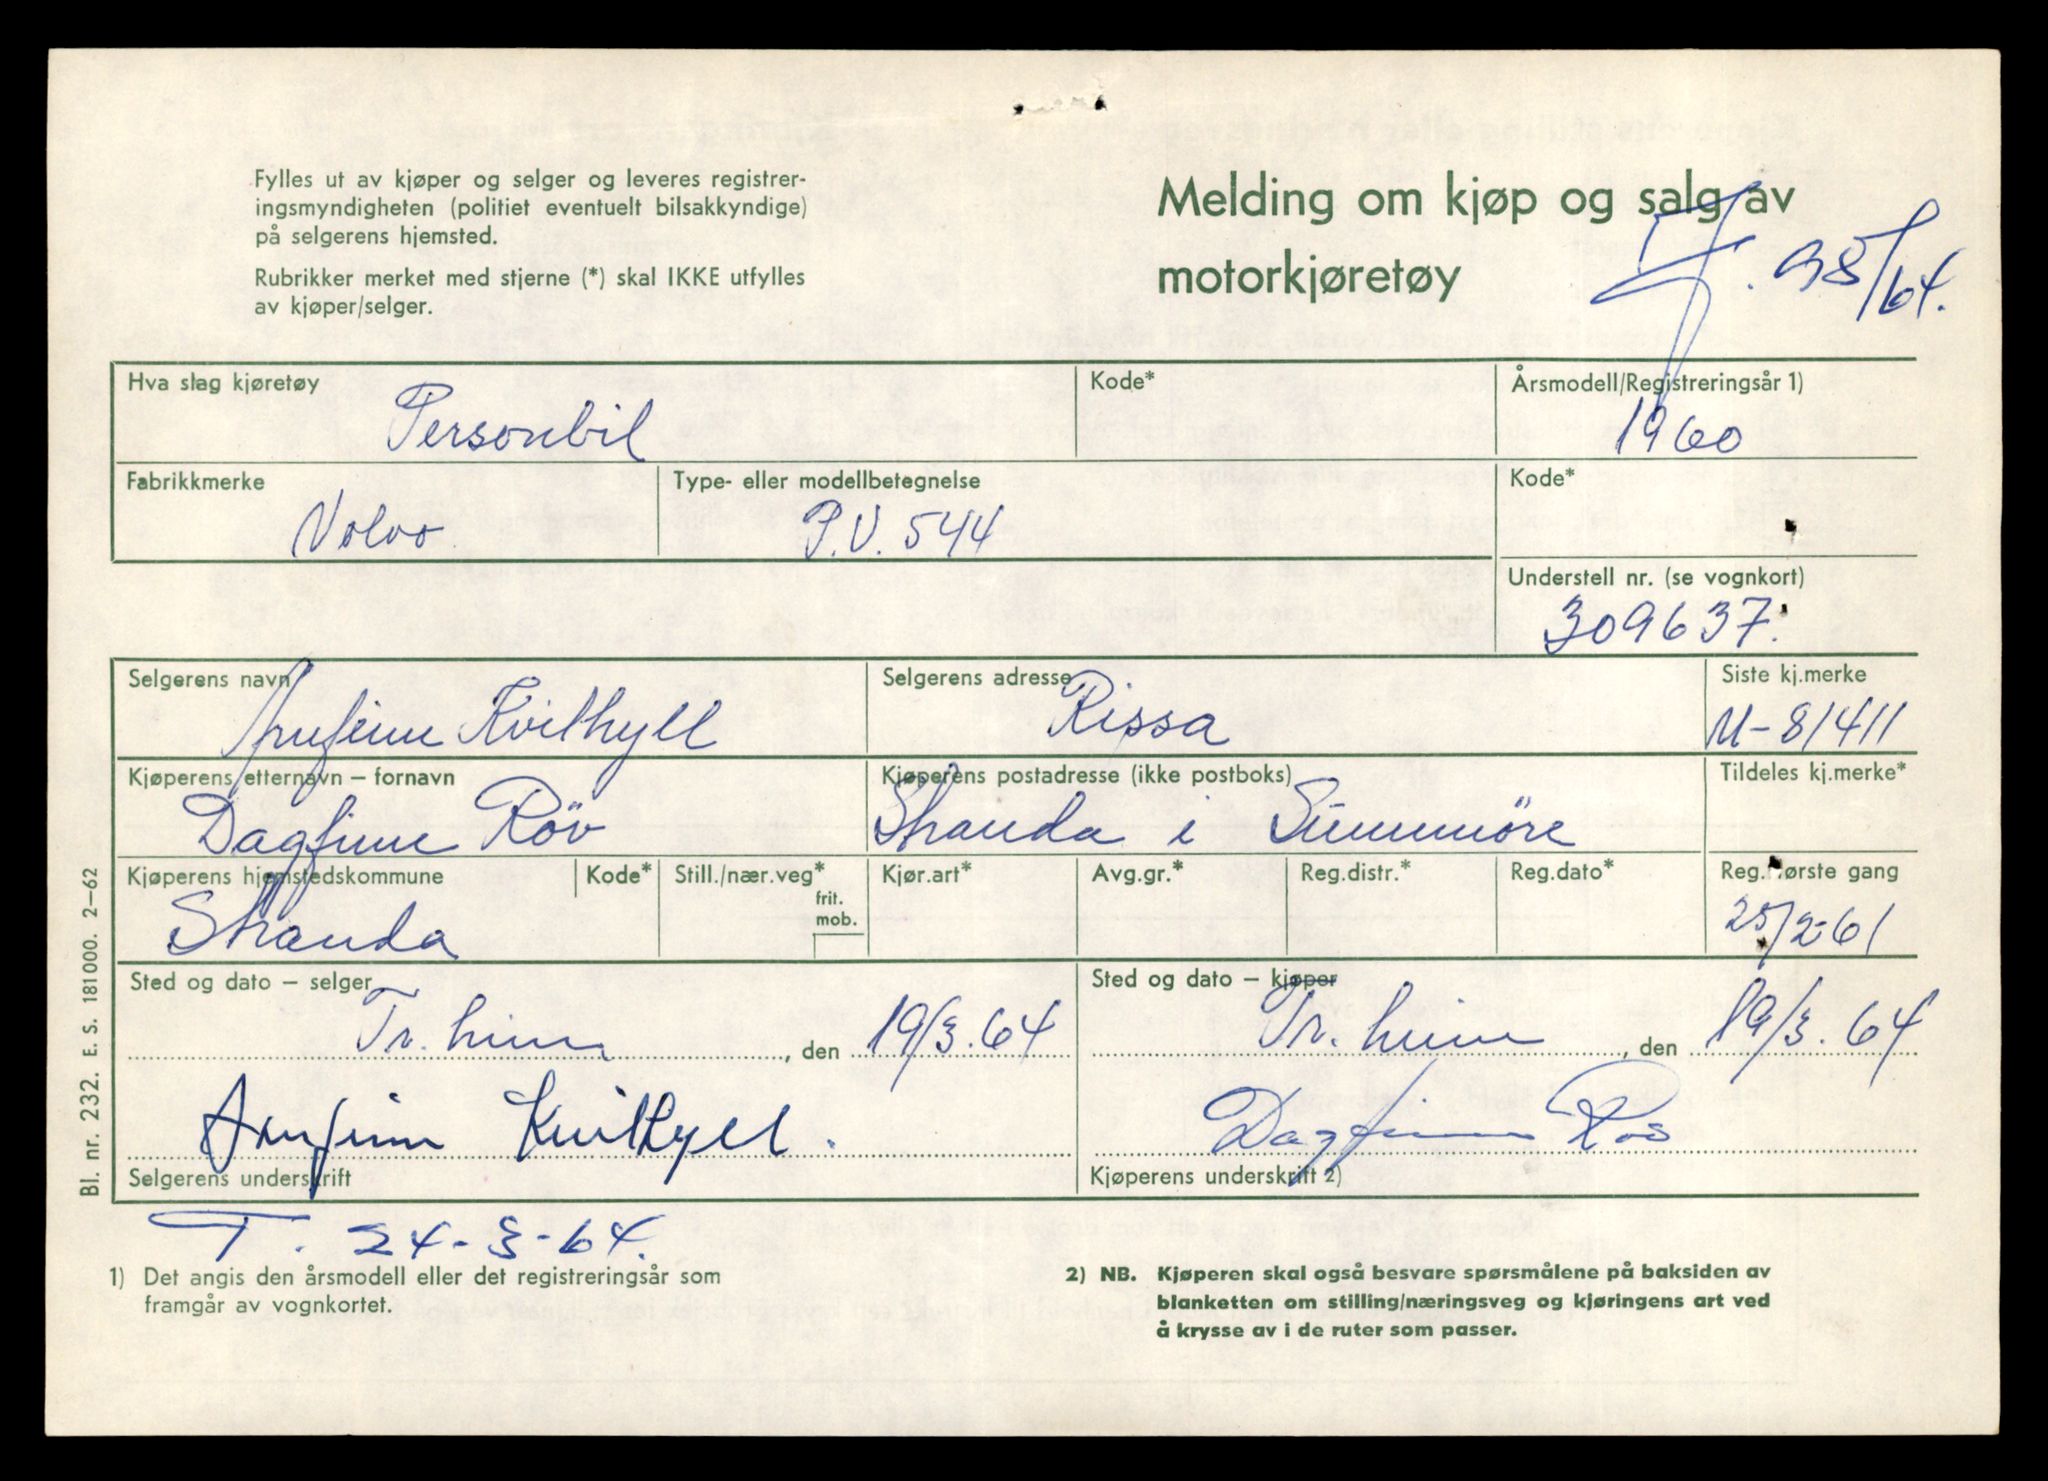 Fylles ut av kjøper og selger og leveres registrer-
ingsmyndigheten (politiet eventuelt bilsakkyndige)
på selgerens hjemsted.
Rubrikker merket med stjerne (*) skal IKKE utfylles
av kjøper/selger.
Melding om kjøp og salg av
motorkjøretøy
98/64.
Hva slag kjøretøy
Personbil
Kode*
Årsmodell/Registreringsår 1)
1960
Fabrikkmerke
Volvo
Type- eller modellbetegnelse
P.V. 544
Kode*
Understell nr. (se vognkort)
309637.
Selgerens navn
Arnfinn Kvithyll
Selgerens adresse
Rissa
Siste kj.merke
U-81411
Kjøperens etternavn – fornavn
Dagfinn Röv
Kjøperens postadresse (ikke postboks)
Stranda i Sunnmöre
Tildeles kj.merke*
Kjøperens hjemstedskommune
Stranda
Kode*
Still./nær.veg*
frit.
mob.
Kjør.art*
Avg.gr.*
Reg.distr.*
Reg.dato*
Reg. første gang
25/2-61
Sted og dato – selger
Tr.heim, den 19/3.64
Sted og dato – kjøper
Tr.heim, den 19/3.64
Arnfinn Kvithyll.
Selgerens underskrift
Dagfinn
Kjøperens underskrift 2)
T. 24-3-64.
1) Det angis den årsmodell eller det registreringsår som
framgår av vognkortet.
2) NB. Kjøperen skal også besvare spørsmålene på baksiden av
blanketten om stilling/næringsveg og kjøringens art ved
å krysse av i de ruter som passer.
Bl. nr. 232. E. S. 181000. 2–62